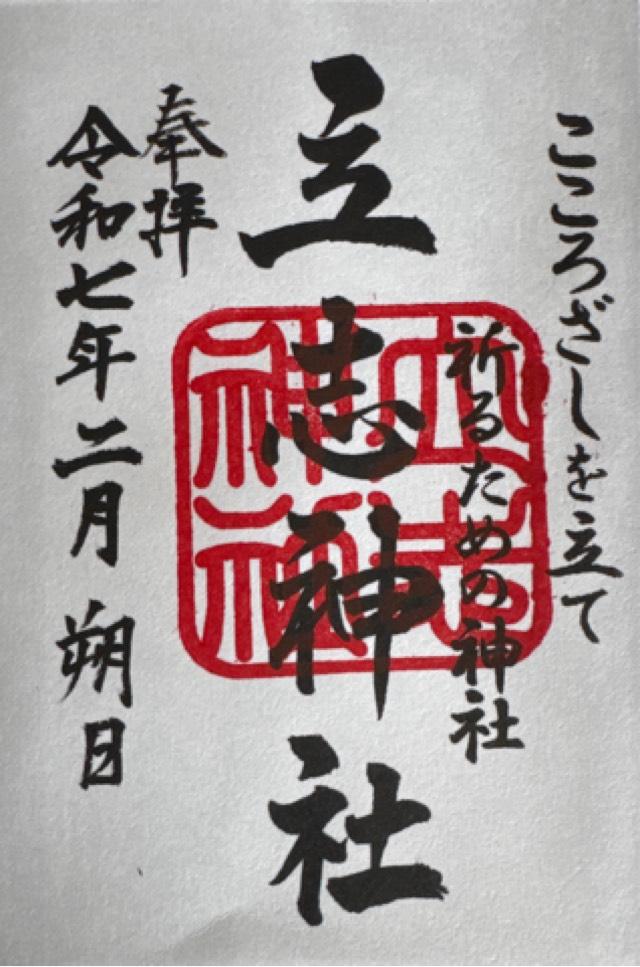 こころざしを立て
祈るための神社
立志神社
奉拝
令和七年二月朔日